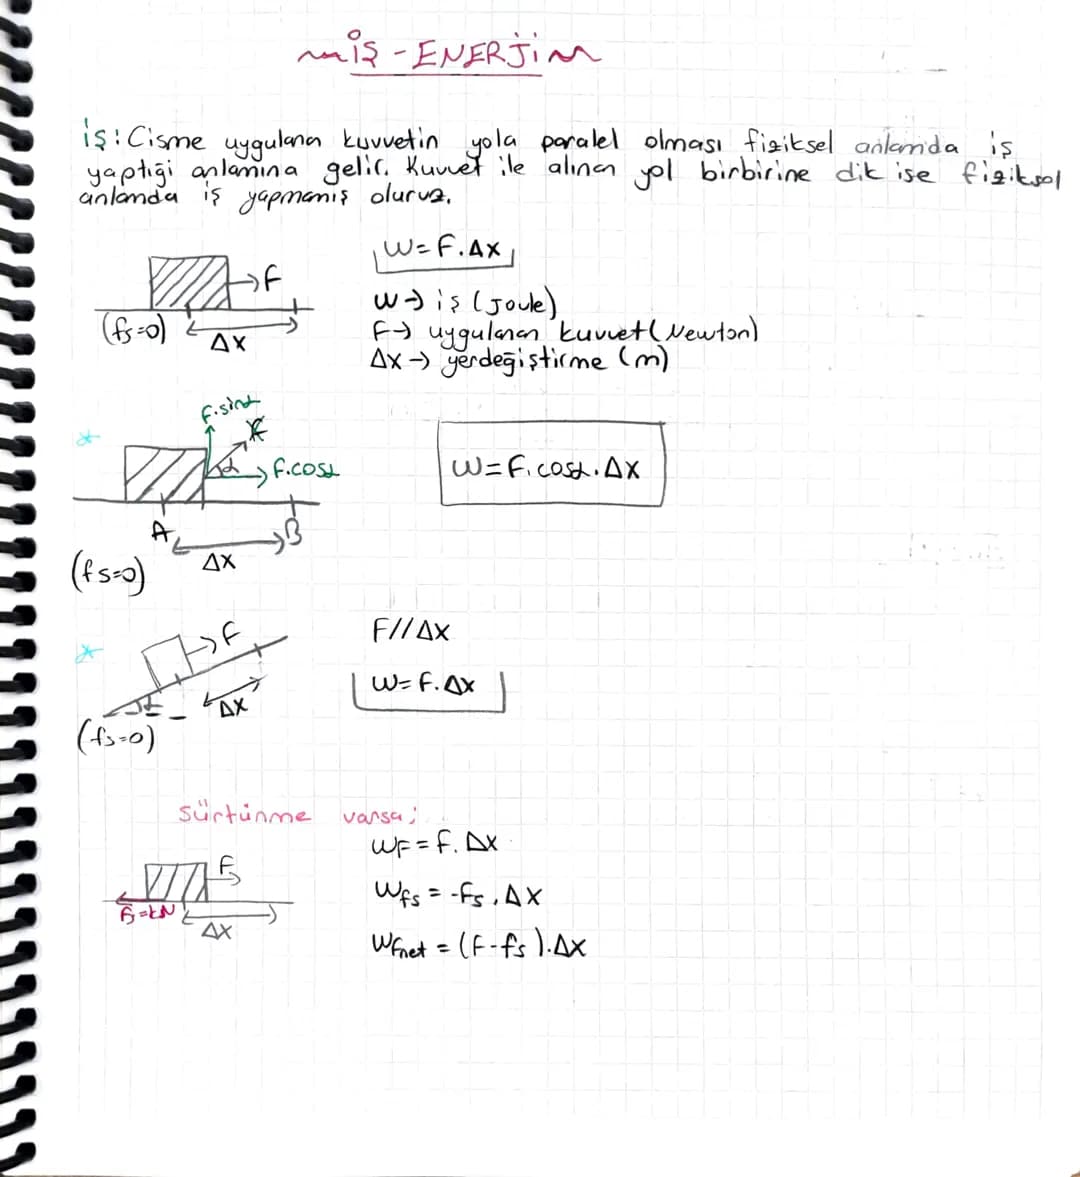 İŞ - ENERJİ
İş: Cisme uygulanan kuvvetin yola paralel olması fiziksel anlamda iş
yaptığı anlamına gelir. Kuvvet ile alınan yol birbirine dik ise fiziksel
anlamda iş yapmamış oluruz.
W=F.Δx
F
(fs=0)
Δx
W→ iş (Joule)
F→ uygulanan kuvvet (Newton)
Δx→ yerdeğiştirme (m)
F.sinα
F
α
F.cosα
W=F.cosα.Δx
A
B
Δx
(fs=0)
F
F//Δx
Δx
W=F.Δx
(fs=0)
Sürtünme varsa;
WF = F.Δx
F
Wfs = -fs.Δx
fs=kN
Δx
WFnet = (F-fs).Δx